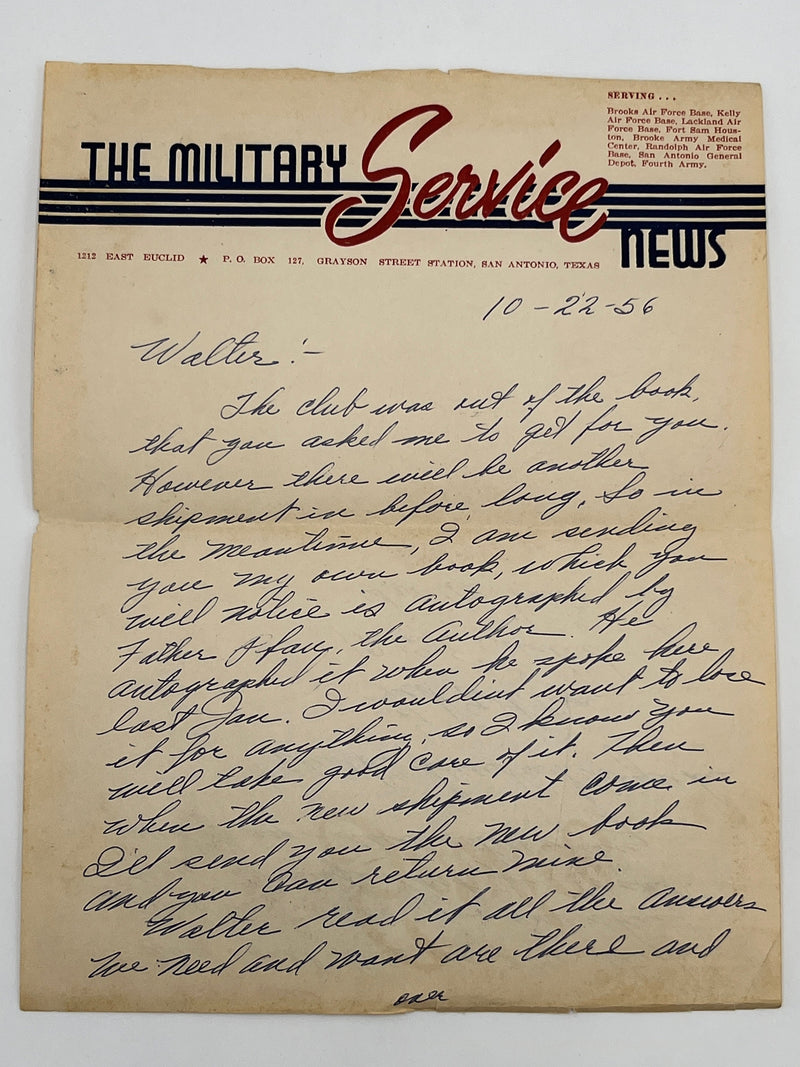 SERVING . . .
Brooks Air Force Base, Kelly
Air Force Base, Lackland Air
Force Base, Fort Sam Hous-
ton, Brooke Army Medical
Center, Randolph Air Force
Base, San Antonio General
Depot, Fourth Army.
THE MILITARY Service NEWS
1212 EAST EUCLID ★ P. O. BOX 127, GRAYSON STREET STATION, SAN ANTONIO, TEXAS
10-22-56
Walter:-
The club was out of the book,
that you asked me to get for you.
However there will be another
shipment in before long. So in
the meantime, I am sending
you my own book, which you
will notice is autographed by
Father Pfau, the Author. He
autographed it when he spoke here
last Jan. I wouldint want to lose
it for anything, so I know you
will take good care of it. Then
when the new shipment come in
I'll send you the new book
and you can return mine.
Walter read it all the answers
we need and want are there and
over